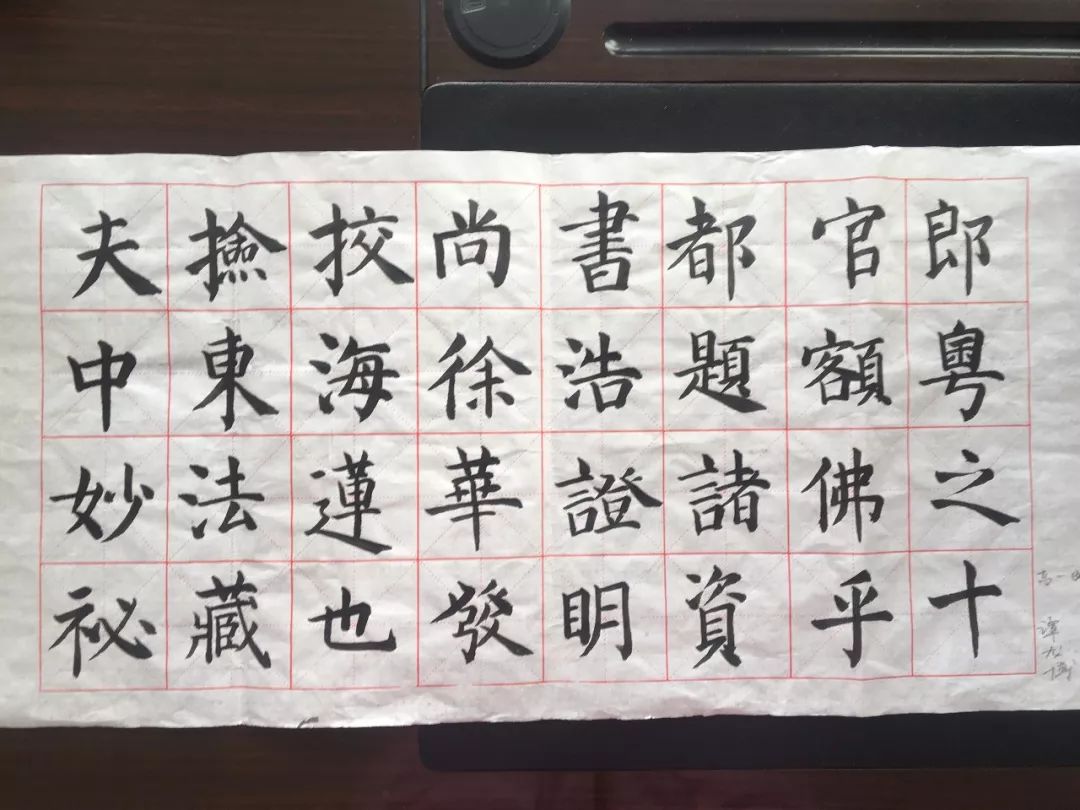 夫撿挍尚書都官郎
中東海徐浩題額粵
妙法蓮華證諸佛之
祕藏也發明資乎十
高一